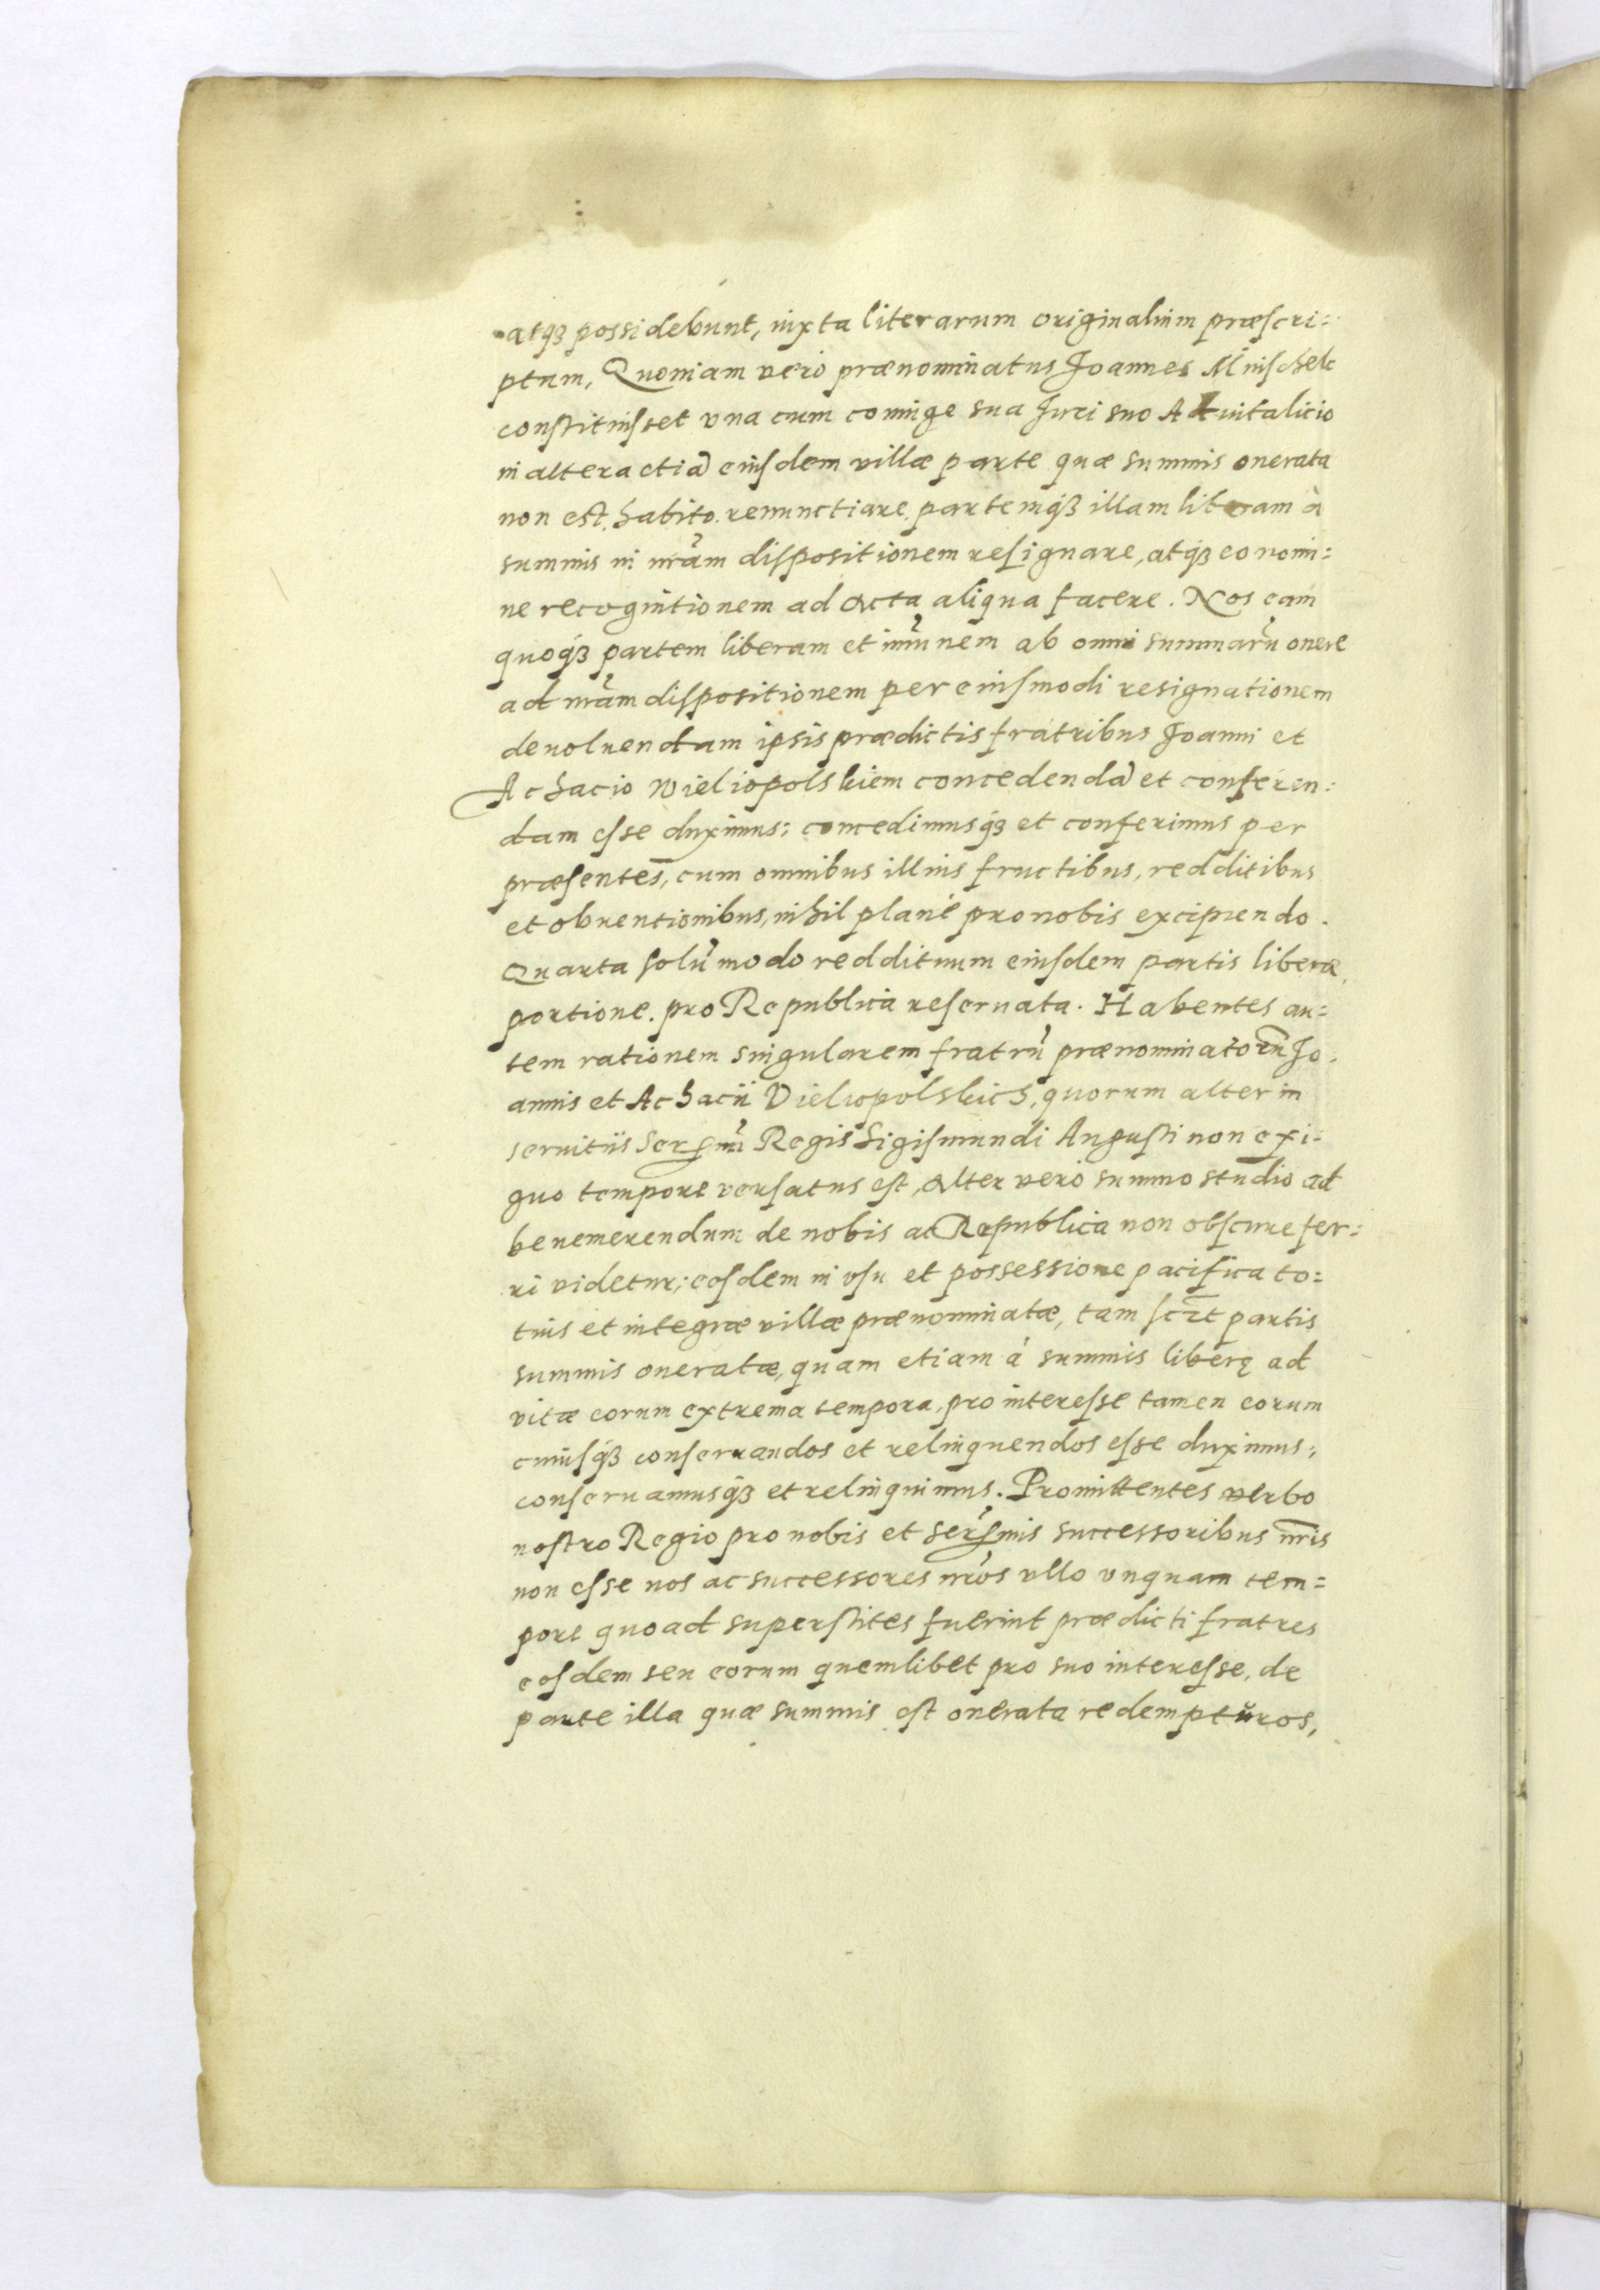 atq3 possidebunt, iuxta literarum originalium præscri=
ptum, Quoniam vero prænominatus Joannes Mnischek
constituisset vna cum coniuge sua Juri suo Aduitalicio
in altera etiã eiusdem villæ parte quæ summis onerata
non est, habito, renunctiare, partemq3 illam liberam à
summis in nrãm dispositionem resignare, atq3 eo nomi=
ne recognitionem ad acta aliqua facere. Nos eam
quoq3 partem liberam et imũnem ab omni summarũ onere
ad nrãm dispositionem per eiusmodi resignationem
deuoluendam ipsis prædictis fratribus Joanni et
Achacio Wieliopolskiem concedendã et conferen:
dam esse duximus: concedimusq3 et conferimus per
præsentes, cum omnibus illius fructibus, redditibus
et obuentionibus, nihil planè pro nobis excipiendo.
Quarta solũmodo reddituum eiusdem partis liberæ
portione. pro Republica reseruata. Habentes au=
tem rationem singularem fratrũ prænominatorũ Jo=
annis et Achacii Vieliopolskich, quorum alter in
seruitiis Sermi Regis Sigismundi Augusti non exi=
guo tempore versatus est, alter vero summo studio ad
benemerendum de nobis ac Republica non obscure fer=
ri videtur; eosdem in vsu et possessione pacifica to=
tius et integræ villæ prænominatæ, tam sczt partis
summis oneratæ, quam etiam á summis liberę ad
vitæ eorum extrema tempora, pro interesse tamen eorum
cuiusq3 conseruandos et relinquendos esse duximus:
conseruamusq3 et relinquimus. Promittentes verbo
nostro Regio pro nobis et serẽmis successoribus nr̃is
non esse nos ac successores nrõs vllo vnquam tem=
pore quoad superstites fuerint prædicti fratres
eosdem seu eorum quemlibet pro suo interesse, de
parte illa quæ summis est onerata redempturos,